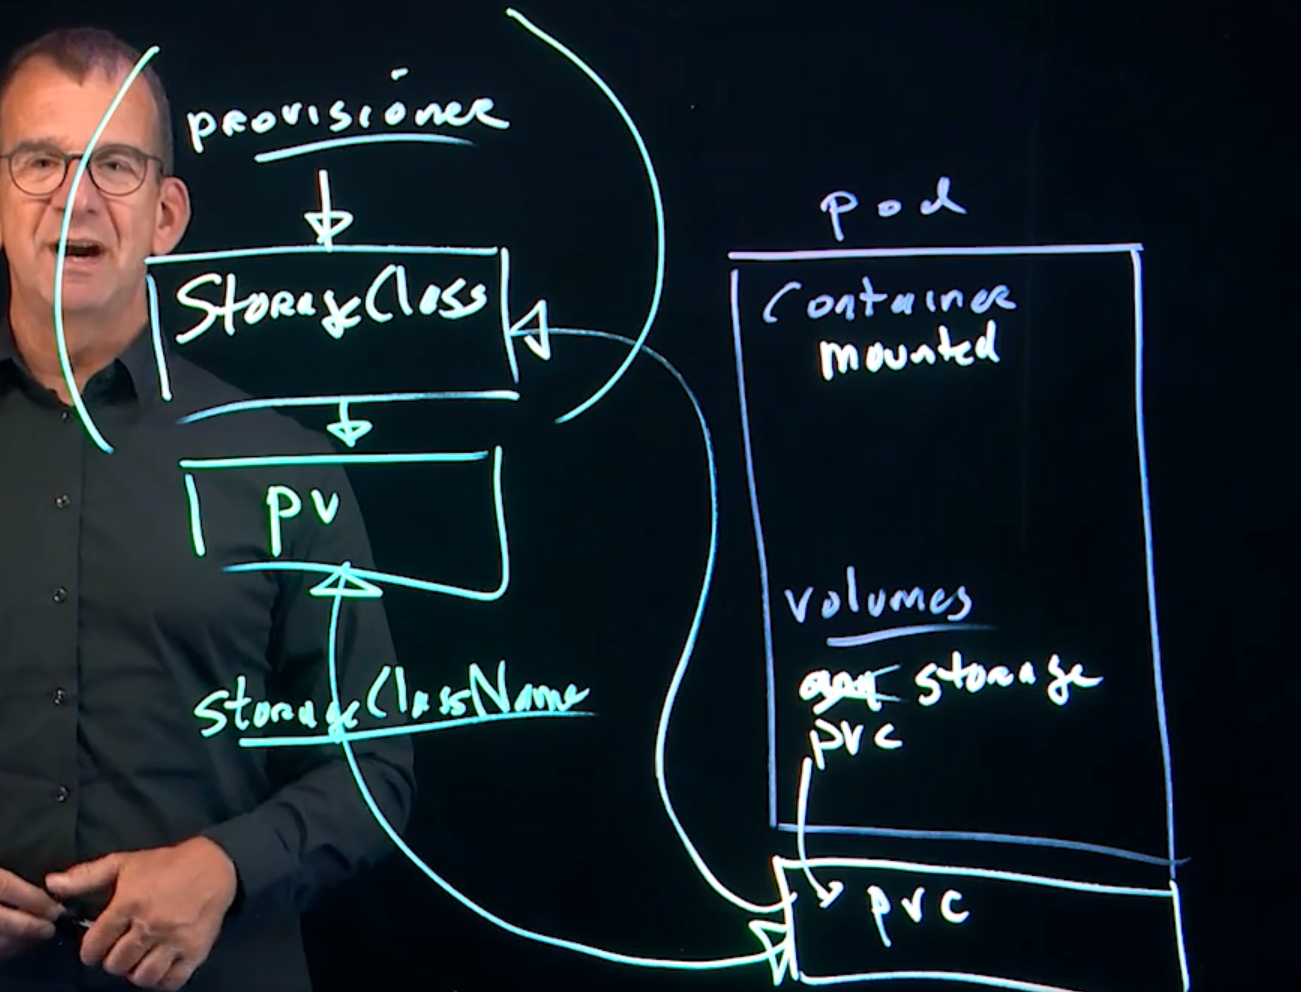 provisioner
StorageClass
pv
storageClassName
pod
Container
mounted
volumes
storage
pvc
pvc